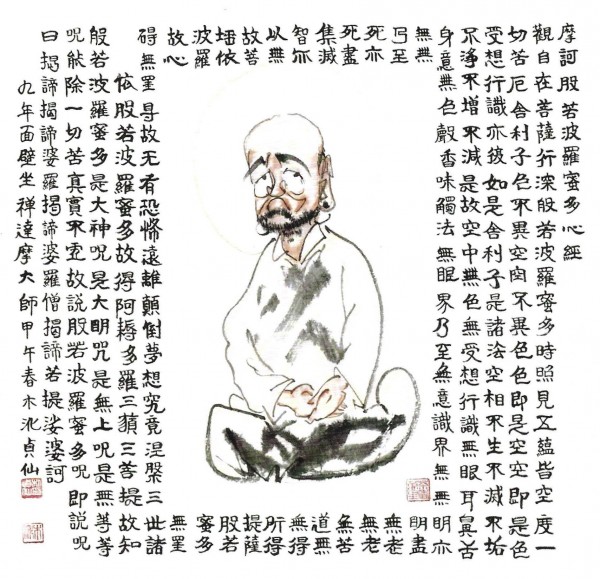 摩訶般若波羅蜜多心經
觀自在菩薩行深般若波羅蜜多時照見五蘊皆空度一
切苦厄舍利子色不異空空不異色色即是空空即是色
受想行識亦復如是舍利子是諸法空相不生不滅不垢
不淨不增不減是故空中無色無受想行識無眼耳鼻舌
身意無色聲香味觸法無眼界乃至無意識界無無明亦
無無明盡
乃至無老
死亦無老
死盡無苦
集滅道無
智亦無得
以無所得
故菩提薩
埵依般若
波羅蜜多
故心無罣
碍無罣㝵故无有恐怖遠離顛倒夢想究竟涅槃三世諸
依般若波羅蜜多故得阿耨多羅三藐三菩提故知
般若波羅蜜多是大神呪是大明呪是無上呪是無等等
呪能除一切苦真實不虛故說般若波羅蜜多呪即説呪
曰揭諦揭諦婆羅揭諦婆羅僧揭諦菩提娑婆訶
九年面壁坐禪達摩大師甲午春木沘貞仙